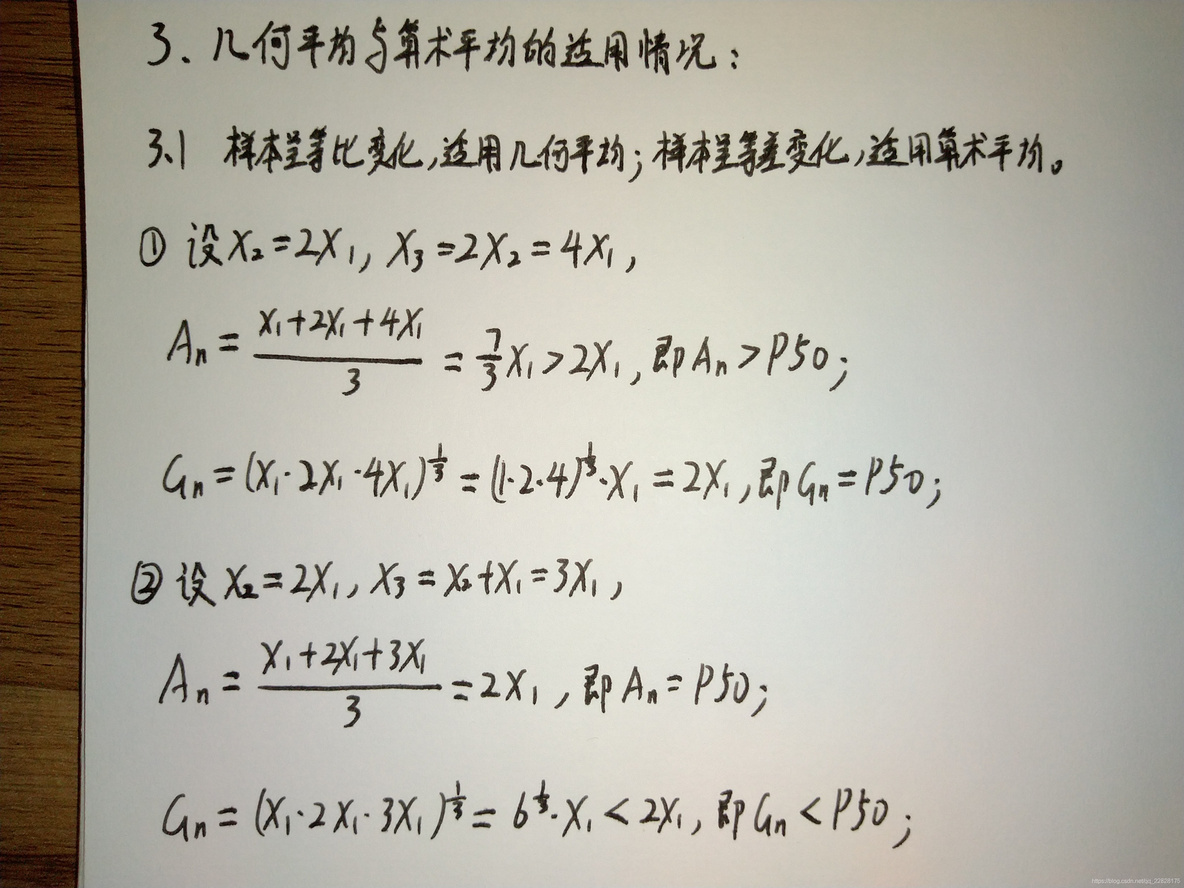 3、几何平均与算术平均的适用情况：
3.1 样本呈等比变化,适用几何平均；样本呈等差变化,适用算术平均。
① 设 X₂=2X₁, X₃=2X₂=4X₁,
Aₙ = (X₁+2X₁+4X₁)/3 = 7/3 X₁ > 2X₁, 即 Aₙ > P50;
Gₙ = (X₁·2X₁·4X₁)^(1/3) = (1·2·4)^(1/3)·X₁ = 2X₁, 即 Gₙ = P50;
② 设 X₂=2X₁, X₃=X₂+X₁=3X₁,
Aₙ = (X₁+2X₁+3X₁)/3 = 2X₁, 即 Aₙ = P50;
Gₙ = (X₁·2X₁·3X₁)^(1/3) = 6^(1/3)·X₁ < 2X₁, 即 Gₙ < P50;